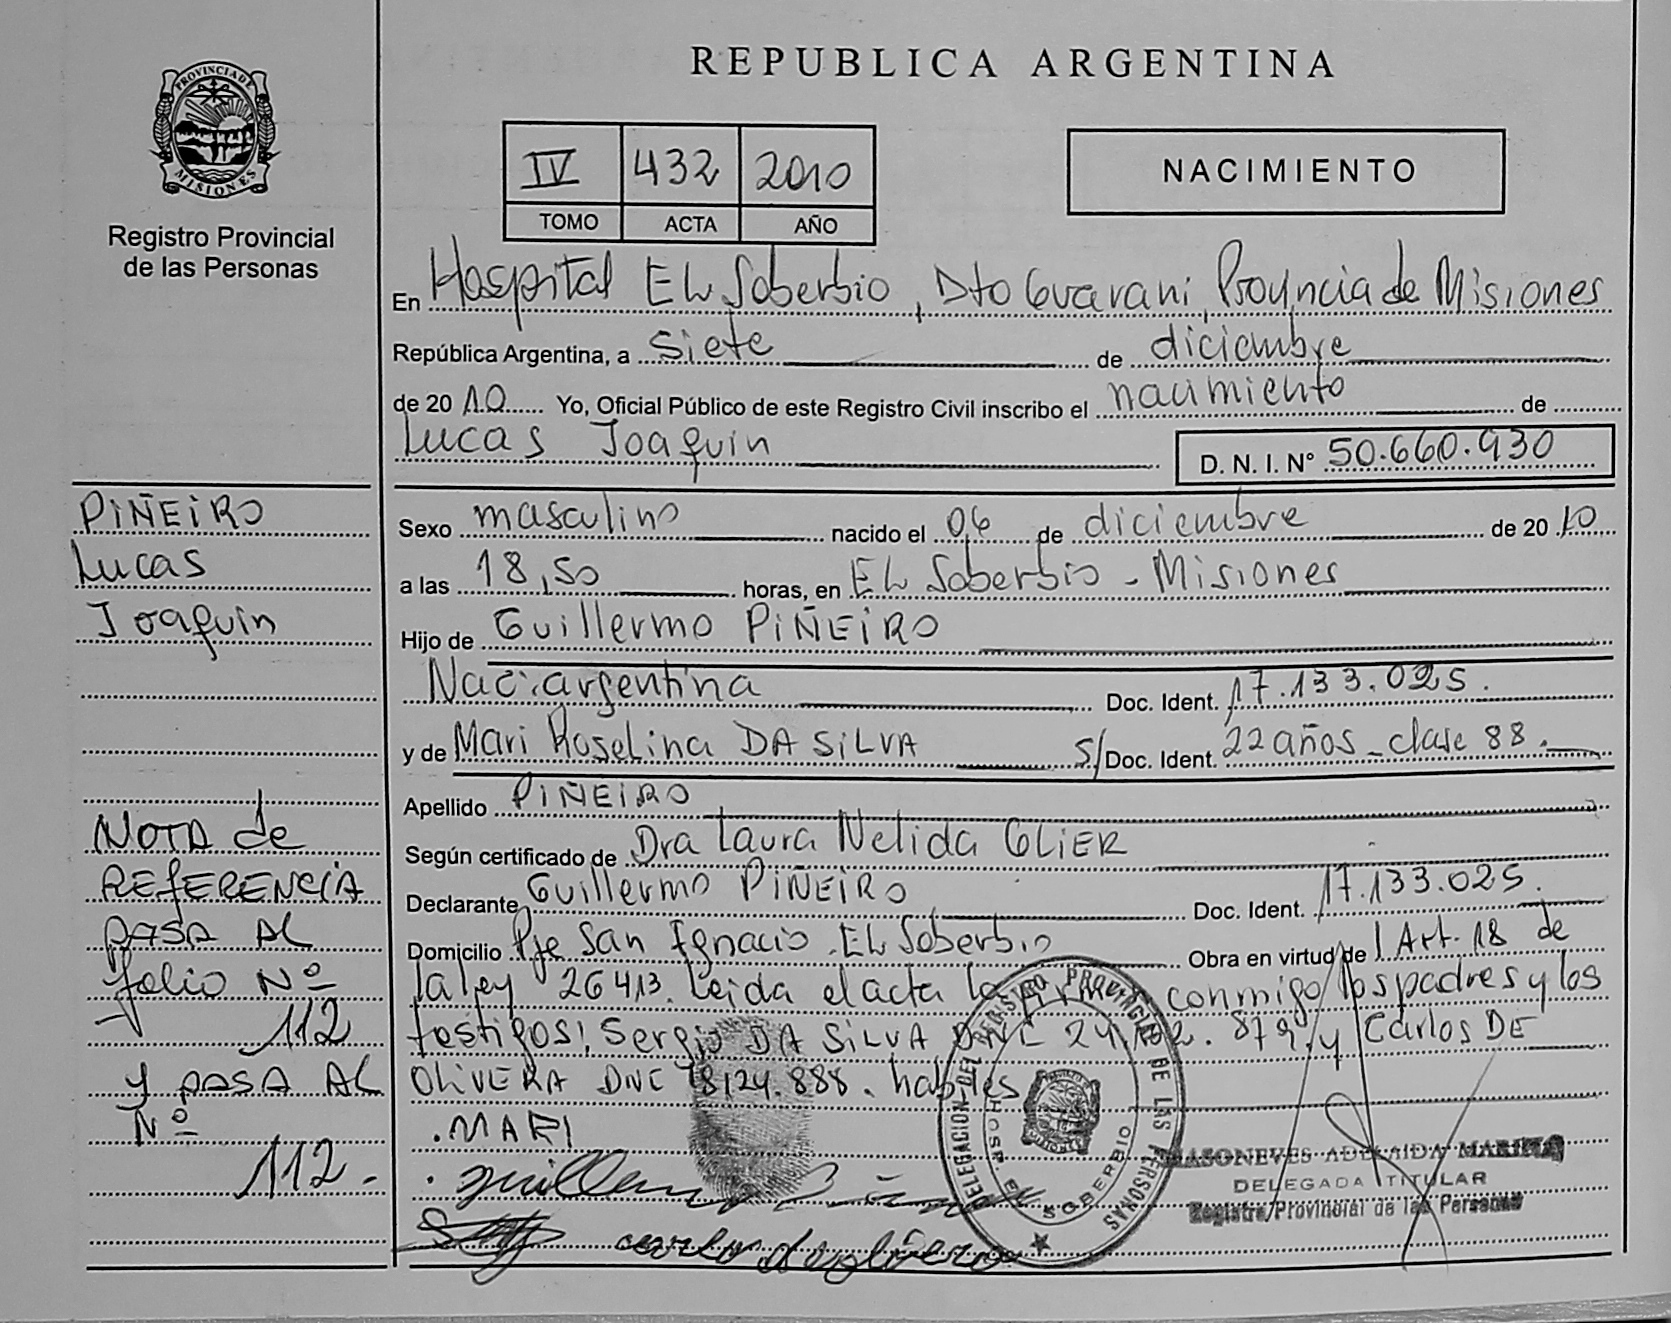 REPUBLICA ARGENTINA
PROVINCIA DE
MISIONES
Registro Provincial
de las Personas
IV 432 2010
TOMO ACTA AÑO
NACIMIENTO
En Hospital El Soberbio, Dto Guarani Provincia de Misiones
República Argentina, a siete de diciembre
de 2010 Yo, Oficial Público de este Registro Civil inscribo el nacimiento de
Lucas Joaquin D. N. I. Nº 50.660.930
PIÑEIRO
Lucas
Joaquin
Sexo masculino nacido el 06 de diciembre de 2010
a las 18,50 horas, en El Soberbio - Misiones
Hijo de Guillermo PIÑEIRO
Nac: argentina Doc. Ident. 17.133.025.
y de Mari Roselina DA SILVA S/Doc. Ident. 22 años - clase 88.
Apellido PIÑEIRO
Según certificado de Dra Laura Nelida GLIER
Declarante Guillermo PIÑEIRO Doc. Ident. 17.133.025.
Domicilio Pje San Ignacio. El Soberbio Obra en virtud de Art. 18 de
la ley 26413. Leida el acta la conmigo los padres y los
testigos: Sergio DA SILVA DNI 879 y Carlos DE
OLIVERA DNI 18.124.888. habiles
NOTA de
REFERENCIA
PASA AL
folio Nº
112
y PASA AL
Nº
112.
.MARI
DELEGACION DEL REGISTRO PROVINCIAL DE LAS PERSONAS
HOSP. EL SOBERBIO
MARINA
DELEGADA TITULAR
Registro Provincial de las Personas